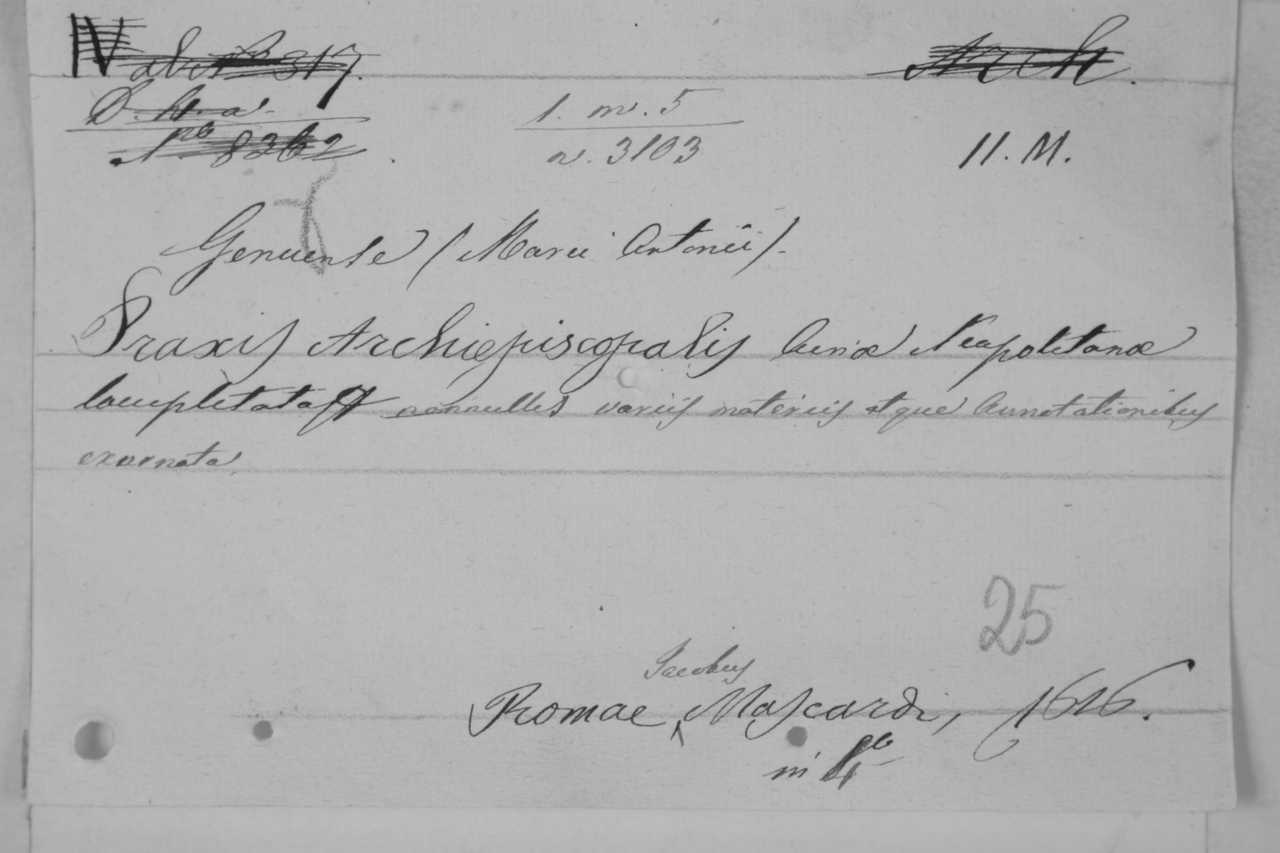 317.
D. H. a.
Nº 8262
1. m. 5
n. 3103
11. M.
Genuense (Marci Antonii).
Praxis Archiepiscopalis Curiæ Neapolitanæ
locupletata nonnullis variis materiis atque Annotationibus
exornata.
25
Jacobus
Romae, Mascardi, 1616.
in 4º